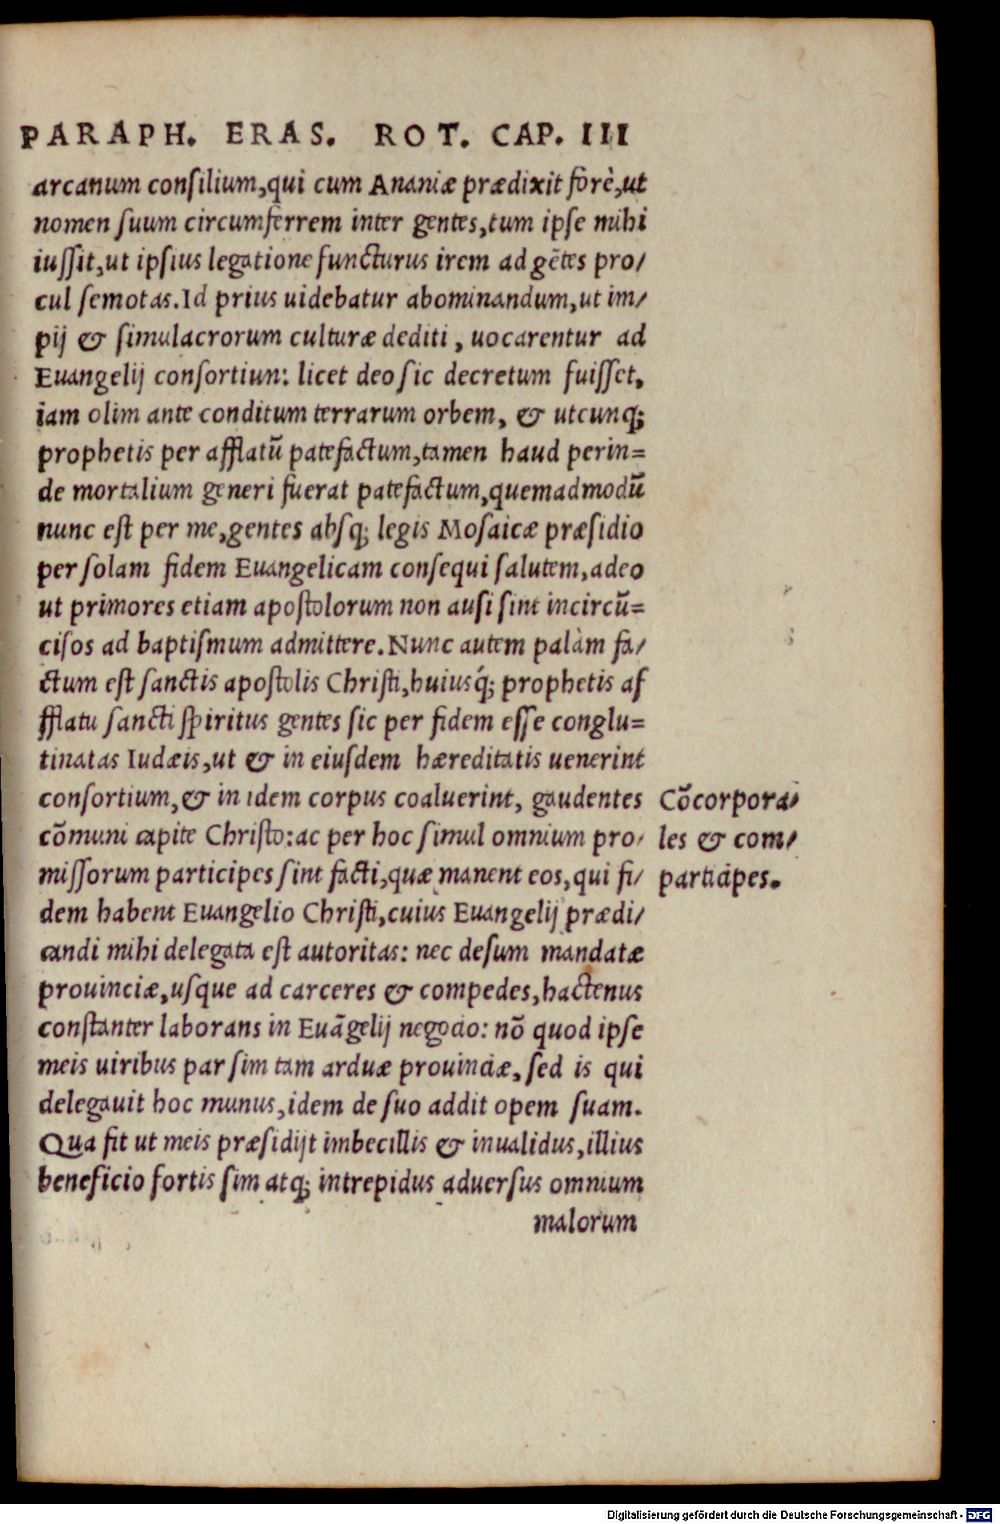 PARAPH. ERAS. ROT. CAP. III
arcanum conſilium,qui cum Ananiæ prædixit forè,ut
nomen ſuum circumferrem inter gentes,tum ipſe mihi
iuſſit,ut ipſius legatione functurus irem ad gẽtes pro/
cul ſemotas.Id prius uidebatur abominandum,ut im/
pij & ſimulacrorum culturæ dediti, uocarentur ad
Euangelij conſortiun: licet deo ſic decretum fuiſſet,
iam olim ante conditum terrarum orbem, & utcunq;
prophetis per afflatũ patefactum,tamen haud perin=
de mortalium generi fuerat patefactum,quemadmodũ
nunc eſt per me,gentes abſq; legis Moſaicæ præſidio
per ſolam fidem Euangelicam conſequi ſalutem,adeo
ut primores etiam apoſtolorum non auſi ſint incircũ=
ciſos ad baptiſmum admittere.Nunc autem palàm fa/
ctum eſt ſanctis apoſtolis Chriſti,huiusq́; prophetis af
fflatu ſancti ſpiritus gentes ſic per fidem eſſe conglu=
tinatas Iudæis,ut & in eiuſdem hæreditatis uenerint
conſortium,& in idem corpus coaluerint, gaudentes
cõmuni capite Chriſto:ac per hoc ſimul omnium pro/
miſſorum participes ſint facti,quæ manent eos,qui fi/
dem habent Euangelio Chriſti,cuius Euangelij prædi/
candi mihi delegata eſt autoritas: nec deſum mandatæ
prouinciæ,uſque ad carceres & compedes,hactenus
conſtanter laborans in Euãgelij negocio: nõ quod ipſe
meis uiribus par ſim tam arduæ prouinciæ, ſed is qui
delegauit hoc munus,idem de ſuo addit opem ſuam.
Qua fit ut meis præſidijt imbecillis & inualidus,illius
beneficio fortis ſim atq; intrepidus aduerſus omnium
malorum
Cõcorpora/
les & com/
participes.
Digitalisierung gefördert durch die Deutsche Forschungsgemeinschaft - DFG